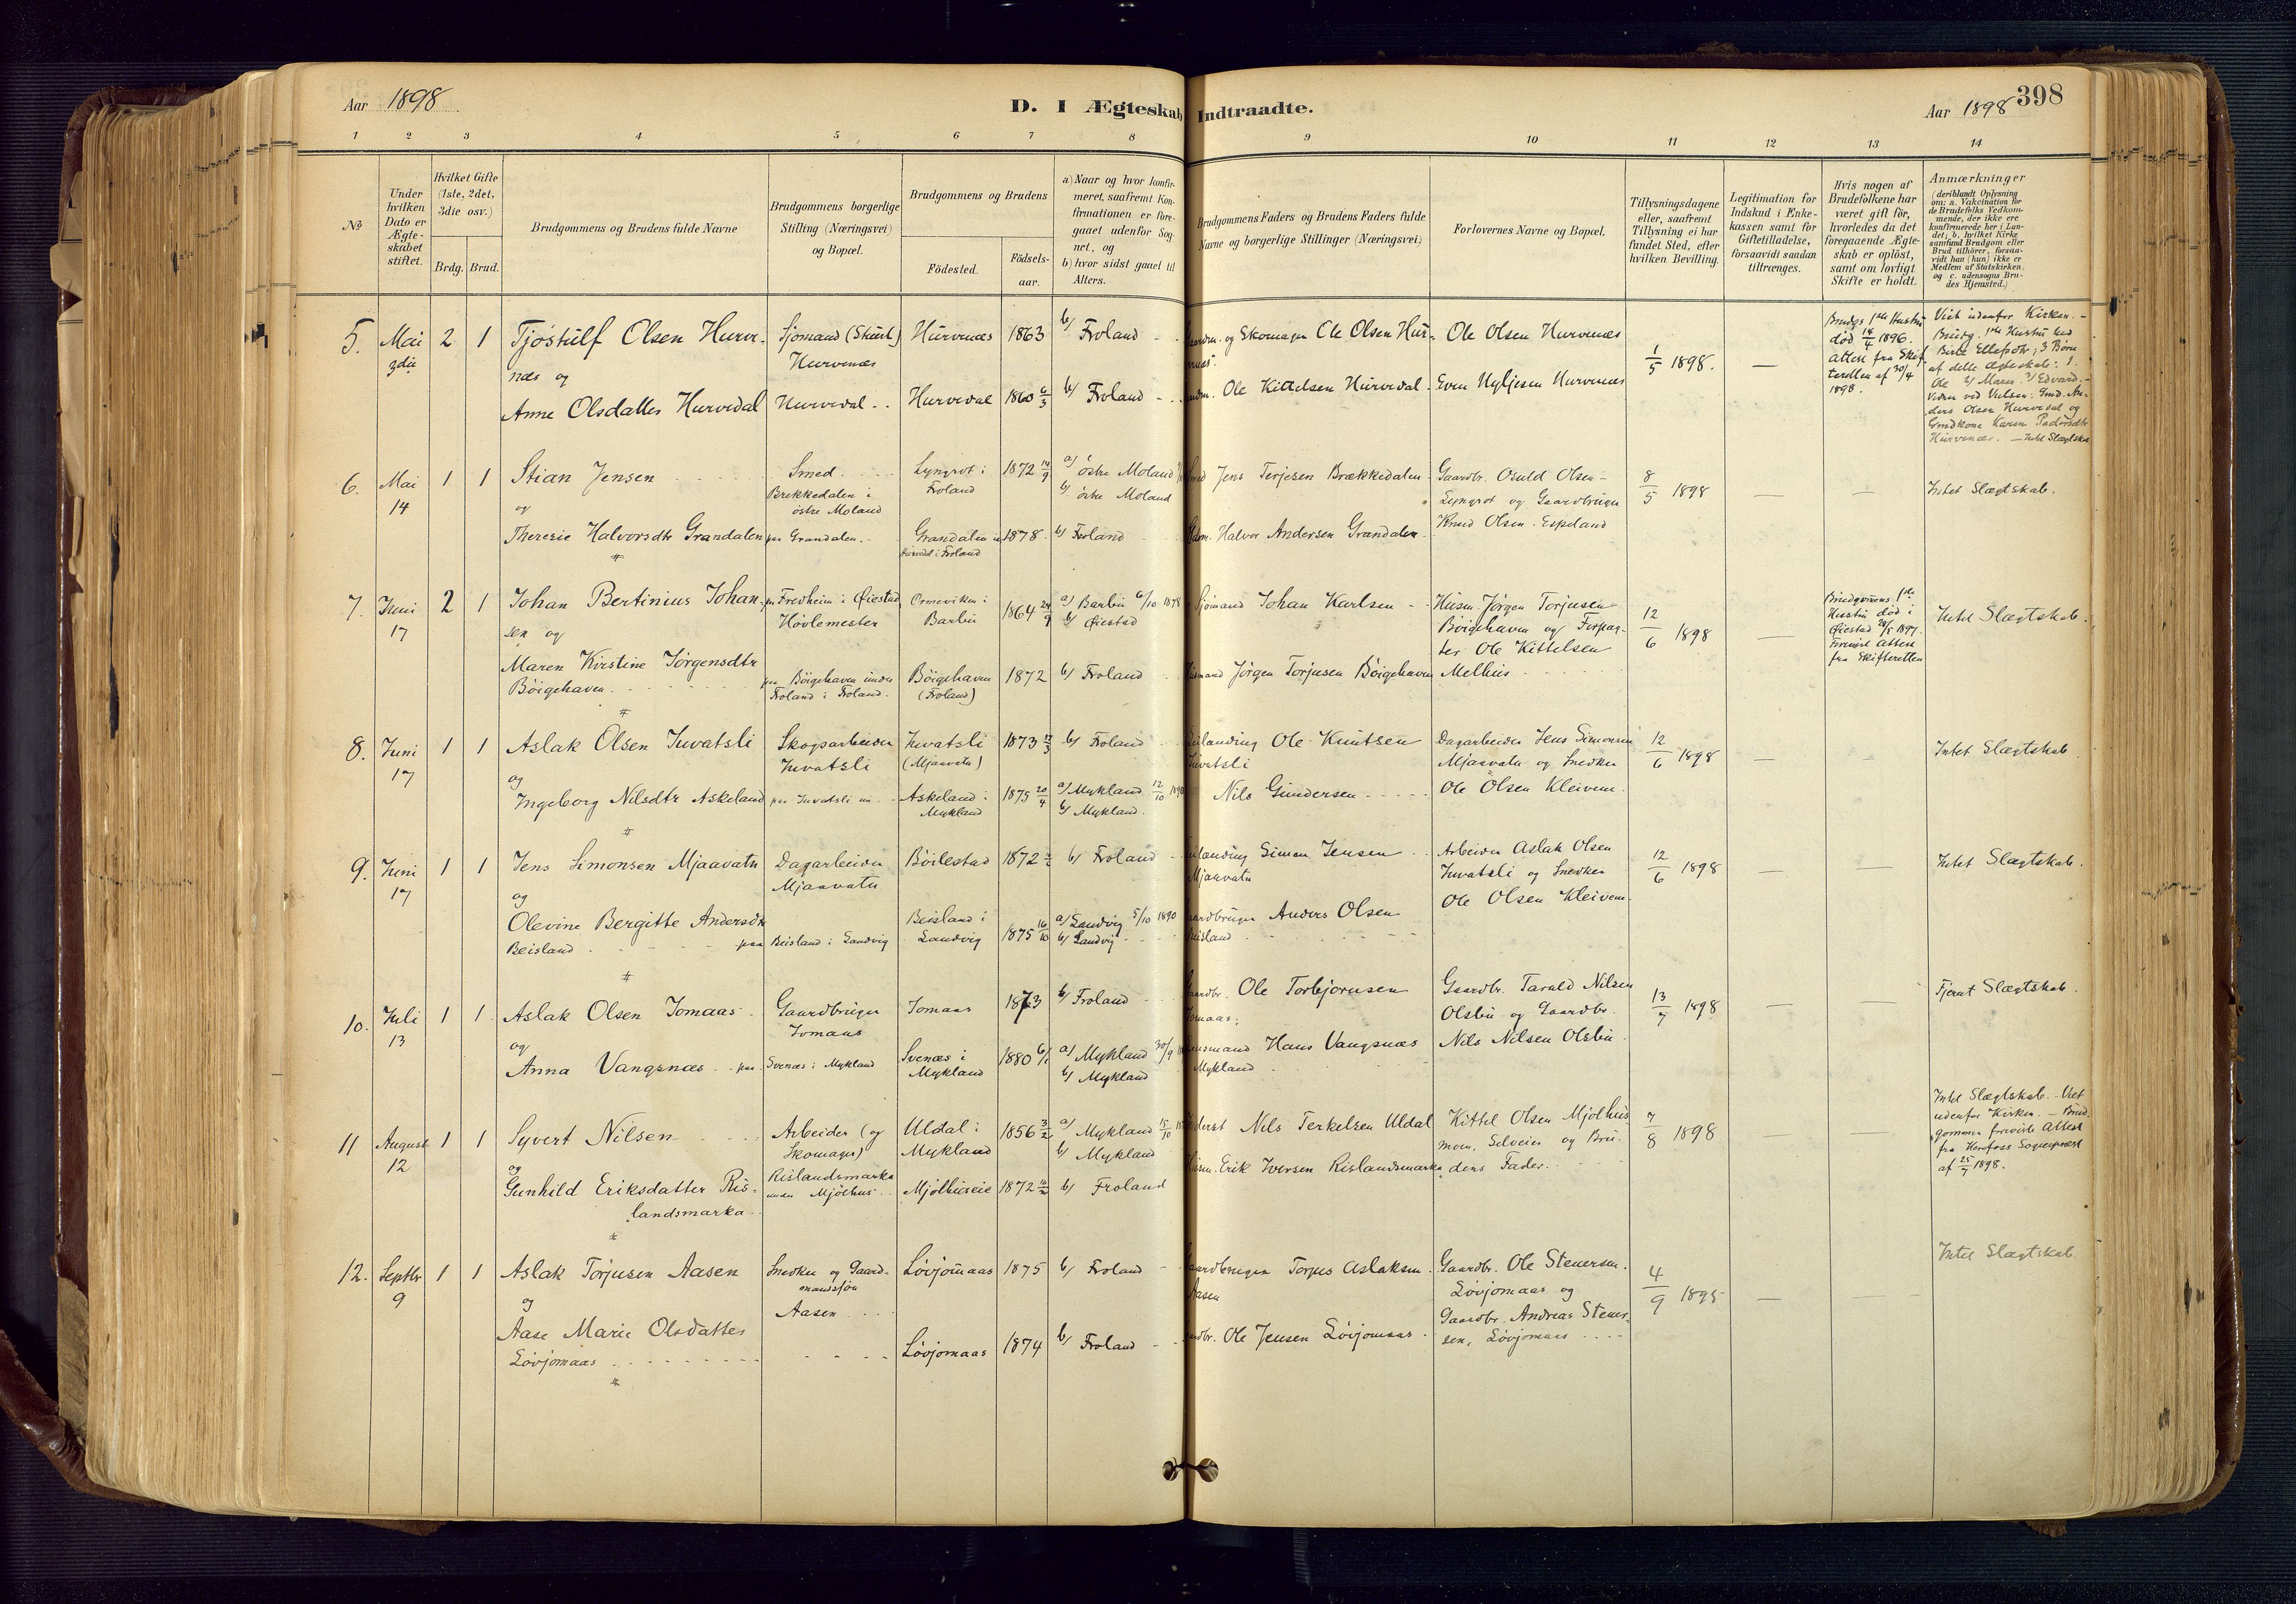 Aar 1898
D. I Ægteskab Indtraadte.
Aar 1898
398
1 2 3 4 5 6 7 8 9 10 11 12 13 14
№
Under hvilken Dato er Ægte-skabet stiftet.
Hvilket Gifte (1ste, 2det, 3die osv.)
Brdg. Brud.
Brudgommens og Brudens fulde Navne
Brudgommens borgerlige Stilling (Næringsvei) og Bopæl.
Brudgommens og Brudens
Födested.
Födsels-aar.
a) Naar og hvor konfir-meret, saafremt Kon-firmationen er fore-gaaet udenfor Sog-net, og
b) hvor sidst gaaet til Alters.
Brudgommens Faders og Brudens Faders fulde Navne og borgerlige Stillinger (Næringsvei)
Forlovernes Navne og Bopæl.
Tillysningsdagene eller, saafremt Tillysning ei har fundet Sted, efter hvilken Bevilling.
Legitimation for Indskud i Enke-kassen samt for Giftetilladelse, forsaavidt saadan tiltrænges.
Hvis nogen af Brudefolkene har været gift för, hvorledes da det foregaaende Ægte-skab er oplöst, samt om lovligt Skifte er holdt.
Anmærkninger (deriblandt Oplysning om: a. Vakcination for de Brudefolks Vedkom-mende, der ikke ere konfirmerede her i Lan-det; b. hvilket Kirke-samfund Brudgom eller Brud tilhörer, forsaa-vidt han (hun) ikke er Medlem af Statskirken, og c. udensogns Bru-des Hjemsted.)
5. Mai 3die 2 1 Tjøstulf Olsen Hurve-
næs og
Sjømand
Hurvenæs
Hurvenæs 1863 b/ Froland
og Skomager Ole Olsen Hur-
næs.
Ole Olsen Hurvenæs
1/5 1898. —
Brudgs 1ste Hustru
død 14/4 1896.
Attest fra Skif-
teretten af 30/4
1898.
Viet udenfor Kirken. -
Brudg. 1ste Hustru hed
3 Børn
af dette Ægteskab: 1.
Ole 2/ Maren 3/ Edvard. -
An-
ders Olsen Hurvedal og
Gmdkone Karen
Hurvenæs. — Intet Slægtska
Anne Olsdatter Hurvedal Hurvedal Hurvedal 1860 6/3 b/ Froland
Ole Kittelsen Hurvedal Even Hurvenæs
6. Mai 14 1 1 Stian Jensen
og
Smed
Brekkedalen i
østre Moland
Lyngrot i
Froland
1872 14/9 a/ østre Moland
b/ østre Moland
Jens Terjesen Brækkedalen
Gaardbr. Osuld Olsen -
Lyngrot og Gaardbruger
Knud Olsen Espeland
8/5 1898 — — Intet Slægtskab.
Theresie Halvorsdtr Grandalen paa Grandalen. Grandalen
Hurvedal i Froland
1878. b/ Froland
Halvor Andersen Grandalen
7. Juni 17 2 1 Johan Bertinius Johan-
sen og
paa Fredheim i Øiestad
Høvlemester
i
Barbu
1864 24/9 a/ Barbu 6/10 1878
b/ Øiestad
Sjømand Johan Karlsen
Husm. Jørgen Torjusen
Bøigehaven og Forpag-
ter Ole Kittelsen
Melhus
12/6 1898 —
Brudgommens 1ste
Hustru død i
Øiestad 28/5 1897.
Attest
fra Skifteretten
Intet Slægtskab.
Maren Kirstine Jørgensdtr
Bøigehaven
paa Bøigehaven under
Froland i Froland.
Bøigehaven
(Froland)
1872 b/ Froland
Jørgen Torjusen Bøigehaven
8. Juni 17 1 1 Aslak Olsen Juvatsli
og
Skogsarbeider
Juvatsli
Juvatsli
(Mjaavatn)
1873 17/3 b/ Froland
Ole Knutsen
Juvatsli
Dagarbeider Jens Simonsen
Mjaavatn og Snedker
Ole Olsen Kleivene
12/6 1898 — — Intet Slægtskab
Ingeborg Nilsdtr Askeland paa Juvatsli Askeland i
Mykland
1875 20/4 a/ Mykland 12/10 1890
b/ Mykland.
Nils Gundersen
9. Juni 17 1 1 Jens Simonsen Mjaavatn
og
Dagarbeider
Mjaavatn
Bøilestad 1872 b/ Froland
Simon Jensen
Mjaavatn
Arbeider Aslak Olsen
Juvatsli og Snedker
Ole Olsen Kleivene
12/6 1898 — — Intet Slægtskab.
Olevine Bergitte Andersdtr
Beisland
paa Beisland i Landvig
Beisland i
Landvig
1875 16/10 a/ Landvig 5/10 1890
b/ Landvig
Gaardbruger Anders Olsen
Beisland
10. Juli 13 1 1 Aslak Olsen Jomaas
og
Gaardbruger
Jomaas
Jomaas 1873 b/ Froland
Gaardbr. Ole Torbjørnsen
Jomaas.
Gaardbr. Tarald Nilsen
Olsbu og Gaardbr.
Nils Nilsen Olsbu
13/7 1898 — — Fjernt Slægtskab.
Anna Vangsnæs paa Svenæs i Mykland Svenæs i
Mykland
1880 6/1 a/ Mykland 30/9
b/ Mykland
Lensmand Hans Vangsnæs
Mykland
11 August 12 1 1 Syvert Nilsen
og
Arbeider (og
Skomager)
Uldal i
Mykland
1856 3/2 a/ Mykland 15/10
b/ Mykland
Nils Terkelsen Uldal
Kittel Olsen Mjølhus
mon, Selveier og Bru-
dens Fader.
7/8 1898 — —
Intet Slægtskab. - Viet
udenfor Kirken. — Brud-
gommen Attest
fra Herefoss Sogneprest
af 25/7 1898.
Gunhild Eriksdatter Ris-
landsmarka
Rislandsmarka
under Mjølhus
Mjølhuseie 1872 16/2 b/ Froland
Husm. Erik Iversen Rislandsmarka
12. Septbr 9 1 1 Aslak Torjusen Aasen
og
Snedker og Gaard-
mandssøn
Aasen
Løvjomaas 1875 b/ Froland
Gaardbruger Torjus Aslaksen
Aasen
Gaardbr. Ole Stenersen
Løvjomaas og
Gaardbr. Andreas Stener-
sen, Løvjomaas
4/9 1898 — — Intet Slægtskab.
Aase Marie Olsdatter
Løvjomaas
Løvjomaas 1874 b/ Froland
Ole Jensen Løvjomaas